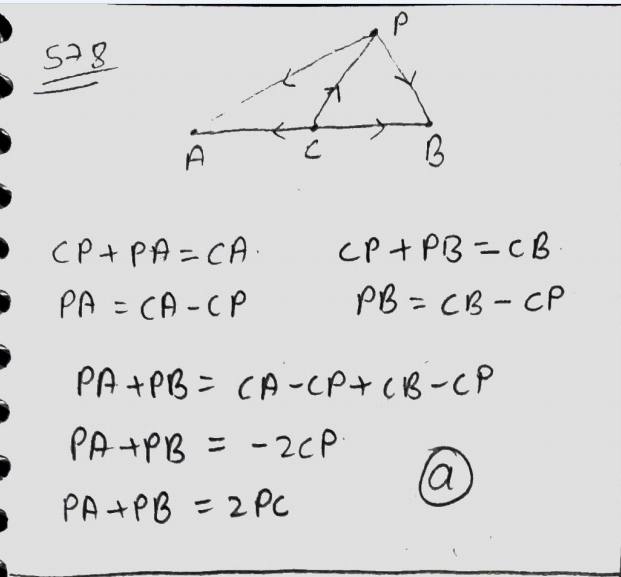 578
P
A C B
CP + PA = CA. CP + PB = CB.
PA = CA - CP PB = CB - CP
PA + PB = CA - CP + CB - CP
PA + PB = -2CP.
PA + PB = 2PC
a